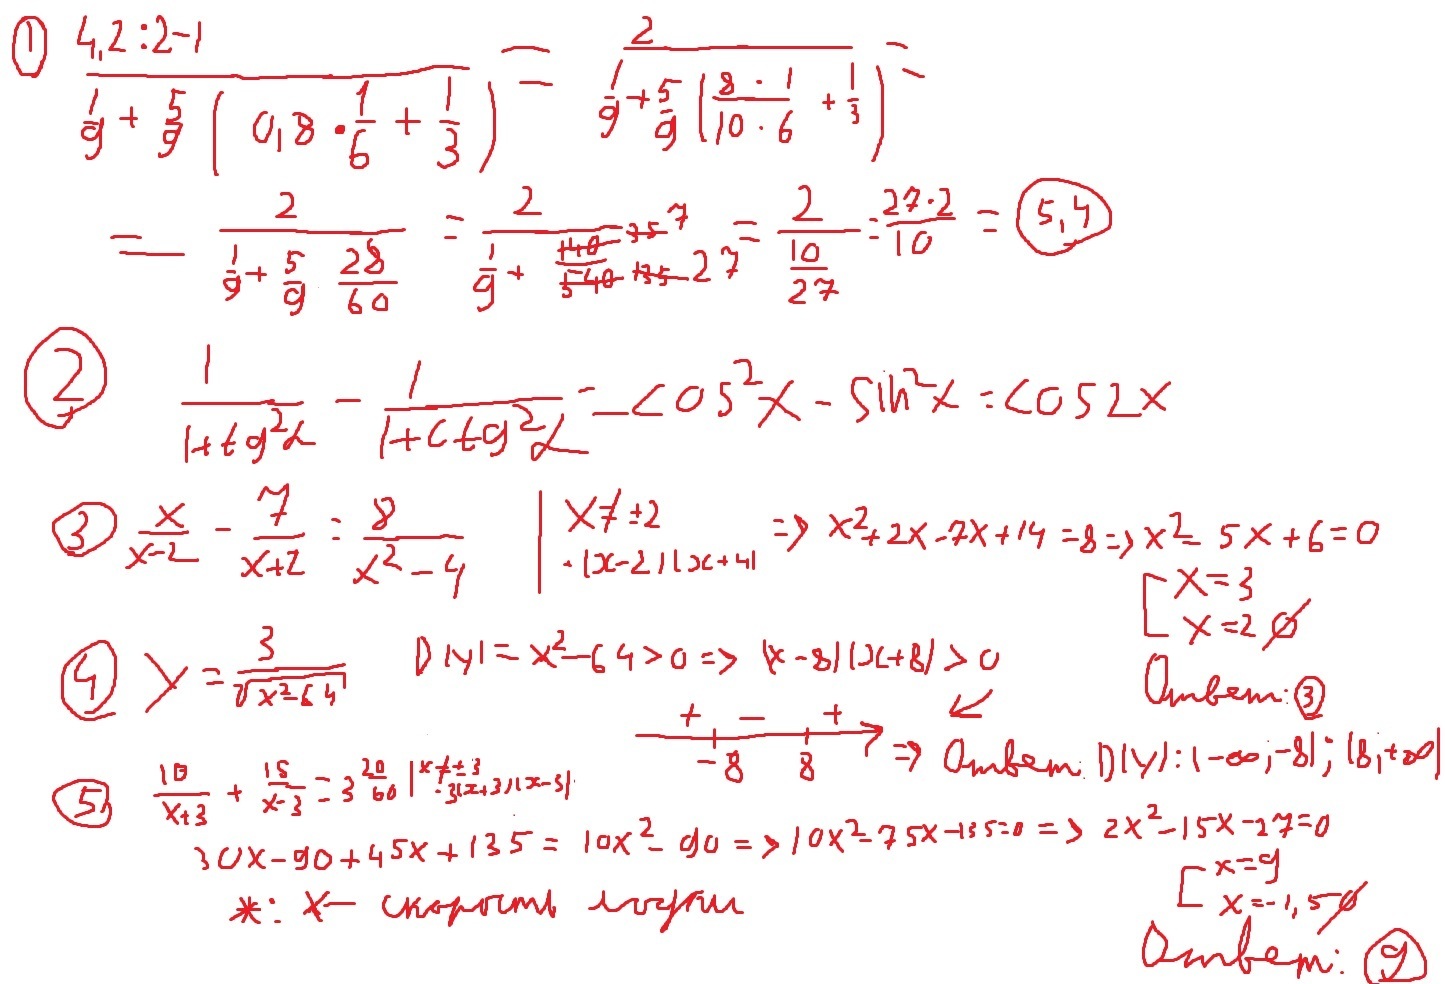 ① (4,2:2-1)/(1/9 + 5/9 (0,8 · 1/6 + 1/3)) = 2/(1/9 + 5/9 ((8 · 1)/(10 · 6) + 1/3)) =
= 2/(1/9 + 5/9 28/60) = 2/(1/9 + 7/27) = 2/(10/27) = (27·2)/10 = 5,4
② 1/(1+tg²α) - 1/(1+ctg²α) = cos²x - sin²x = cos2x
③ x/(x-2) - 7/(x+2) = 8/(x²-4) | x≠±2 ·(x-2)(x+4) => x²+2x-7x+14=8 => x²-5x+6=0
[x=3
x=2 ∅
Ответ: ③
④ y = 3/√(x²-64) D(y) = x²-64>0 => (x-8)(x+8)>0
+ - +
-8 8 => Ответ: D(y): (-∞;-8); (8,+∞)
⑤ 10/(x+3) + 15/(x-3) = 3 20/60 | x≠±3 ·3(x+3)(x-3)
30x-90+45x+135 = 10x²-90 => 10x²-75x-135=0 => 2x²-15x-27=0
[x=9
x=-1,5 ∅
*: x- скорость лодки
Ответ: ⑨